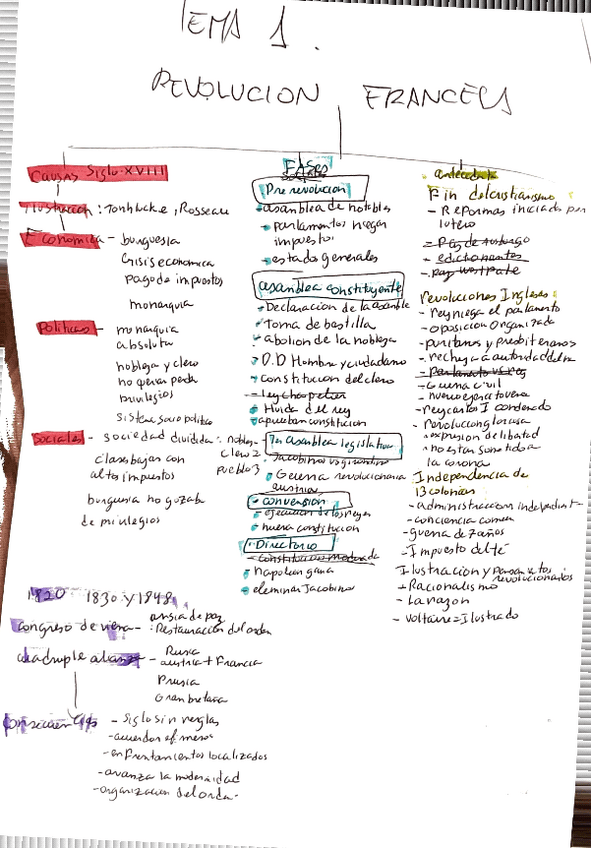 TEMA 1.
REVOLUCION FRANCESA
Causas Siglo XVIII
Ilustracion: Rosseau
Economica - burguesia
Crisis economica
Pago de impuestos
monarquia
Politicas - monarquia
absoluta
nobleza y clero
no querian perder
privilegios
sistema socio politico
Sociales - sociedad dividida: nobleza
clero 2
pueblo 3
clases bajas con
altos impuestos
burguesia no gozaba
de privilegios
Fases
Pre revolucion
asamblea de notables
parlamentos niegan
impuestos
estados generales
asamblea constituyente
Declaracion de la asamblea
Toma de bastilla
abolion de la nobleza
D.D Hombre y ciudadano
constitucion del clero
ley chapelier
Huida del rey
aprueban constitucion
asamblea legislativa
Jacobinos vs girondinos
Guerra revolucionaria
austria
convension
ejecucion de los reyes
nueva constitucion
Directorio
constitucion moderada
napoleon gana
eleminar Jacobino
antecedente
Fin del cristianismo
- Reformas iniciada por
lutero
- Paz de
-
- paz
Revoluciones Inglesa
- rey niega el parlamento
- oposicion organizada
- puritanos y presbiterianos
- rechaza a autoridad del
- Parlamento vs rey
- Guerra civil
- nuevo ejercito
- rey carlos I condenado
- Revolucion gloriosa
- expresion de libertad
- no estan sometido a
la corona
Independencia de
13 colonias
- administracion independiente
- conciencia comun
- guerra de 7 años
- Impuesto del té
Ilustracion y
revolucionarios
- Racionalismo
- La razon
- voltaire = Ilustrado
1820 1830 y 1848
congreso de viena - ansia de paz
: Restauracion del orden
cuadruple alianza - Rusia
austria + Francia
Prusia
Gran bretaña
Consecuencias - Siglo sin reglas
- acuerdos
- enfrentamientos localizados
- avanza la modernidad
- organizacion del orden